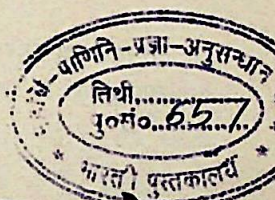 पाणिनि-प्रज्ञा-अनुसन्धान
तिथी..............
पु०मं०.657
भारती पुस्तकालय